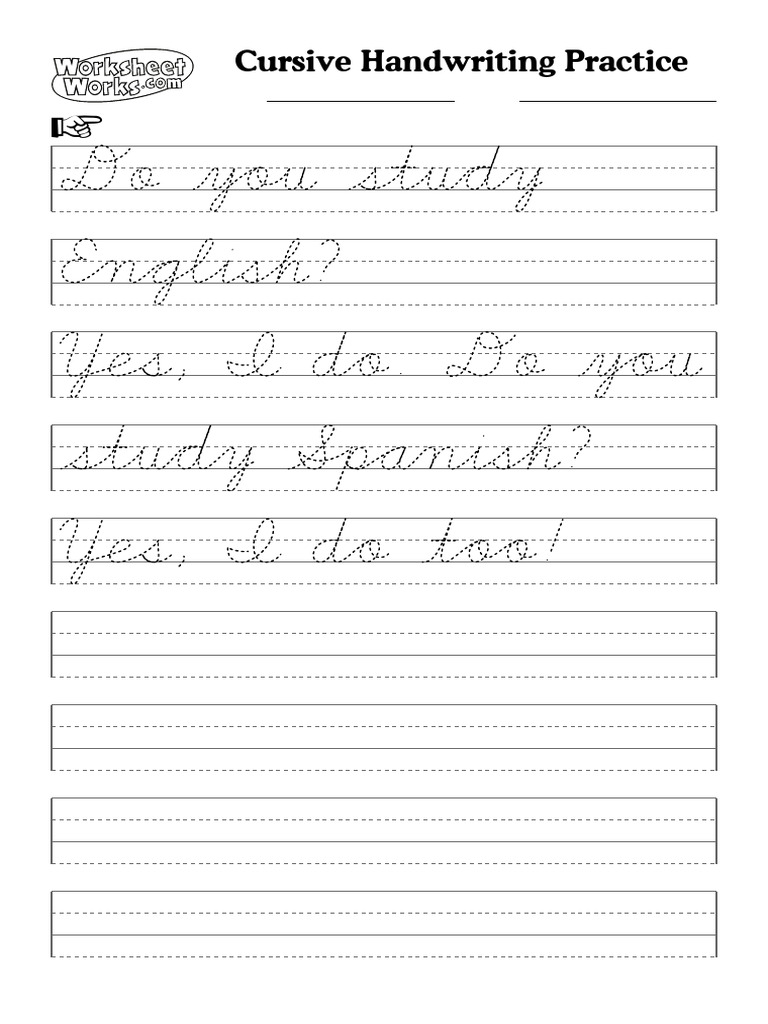 Worksheet
Works.com
Cursive Handwriting Practice
Do you study
English?
Yes, I do. Do you
study Spanish?
Yes, I do too!